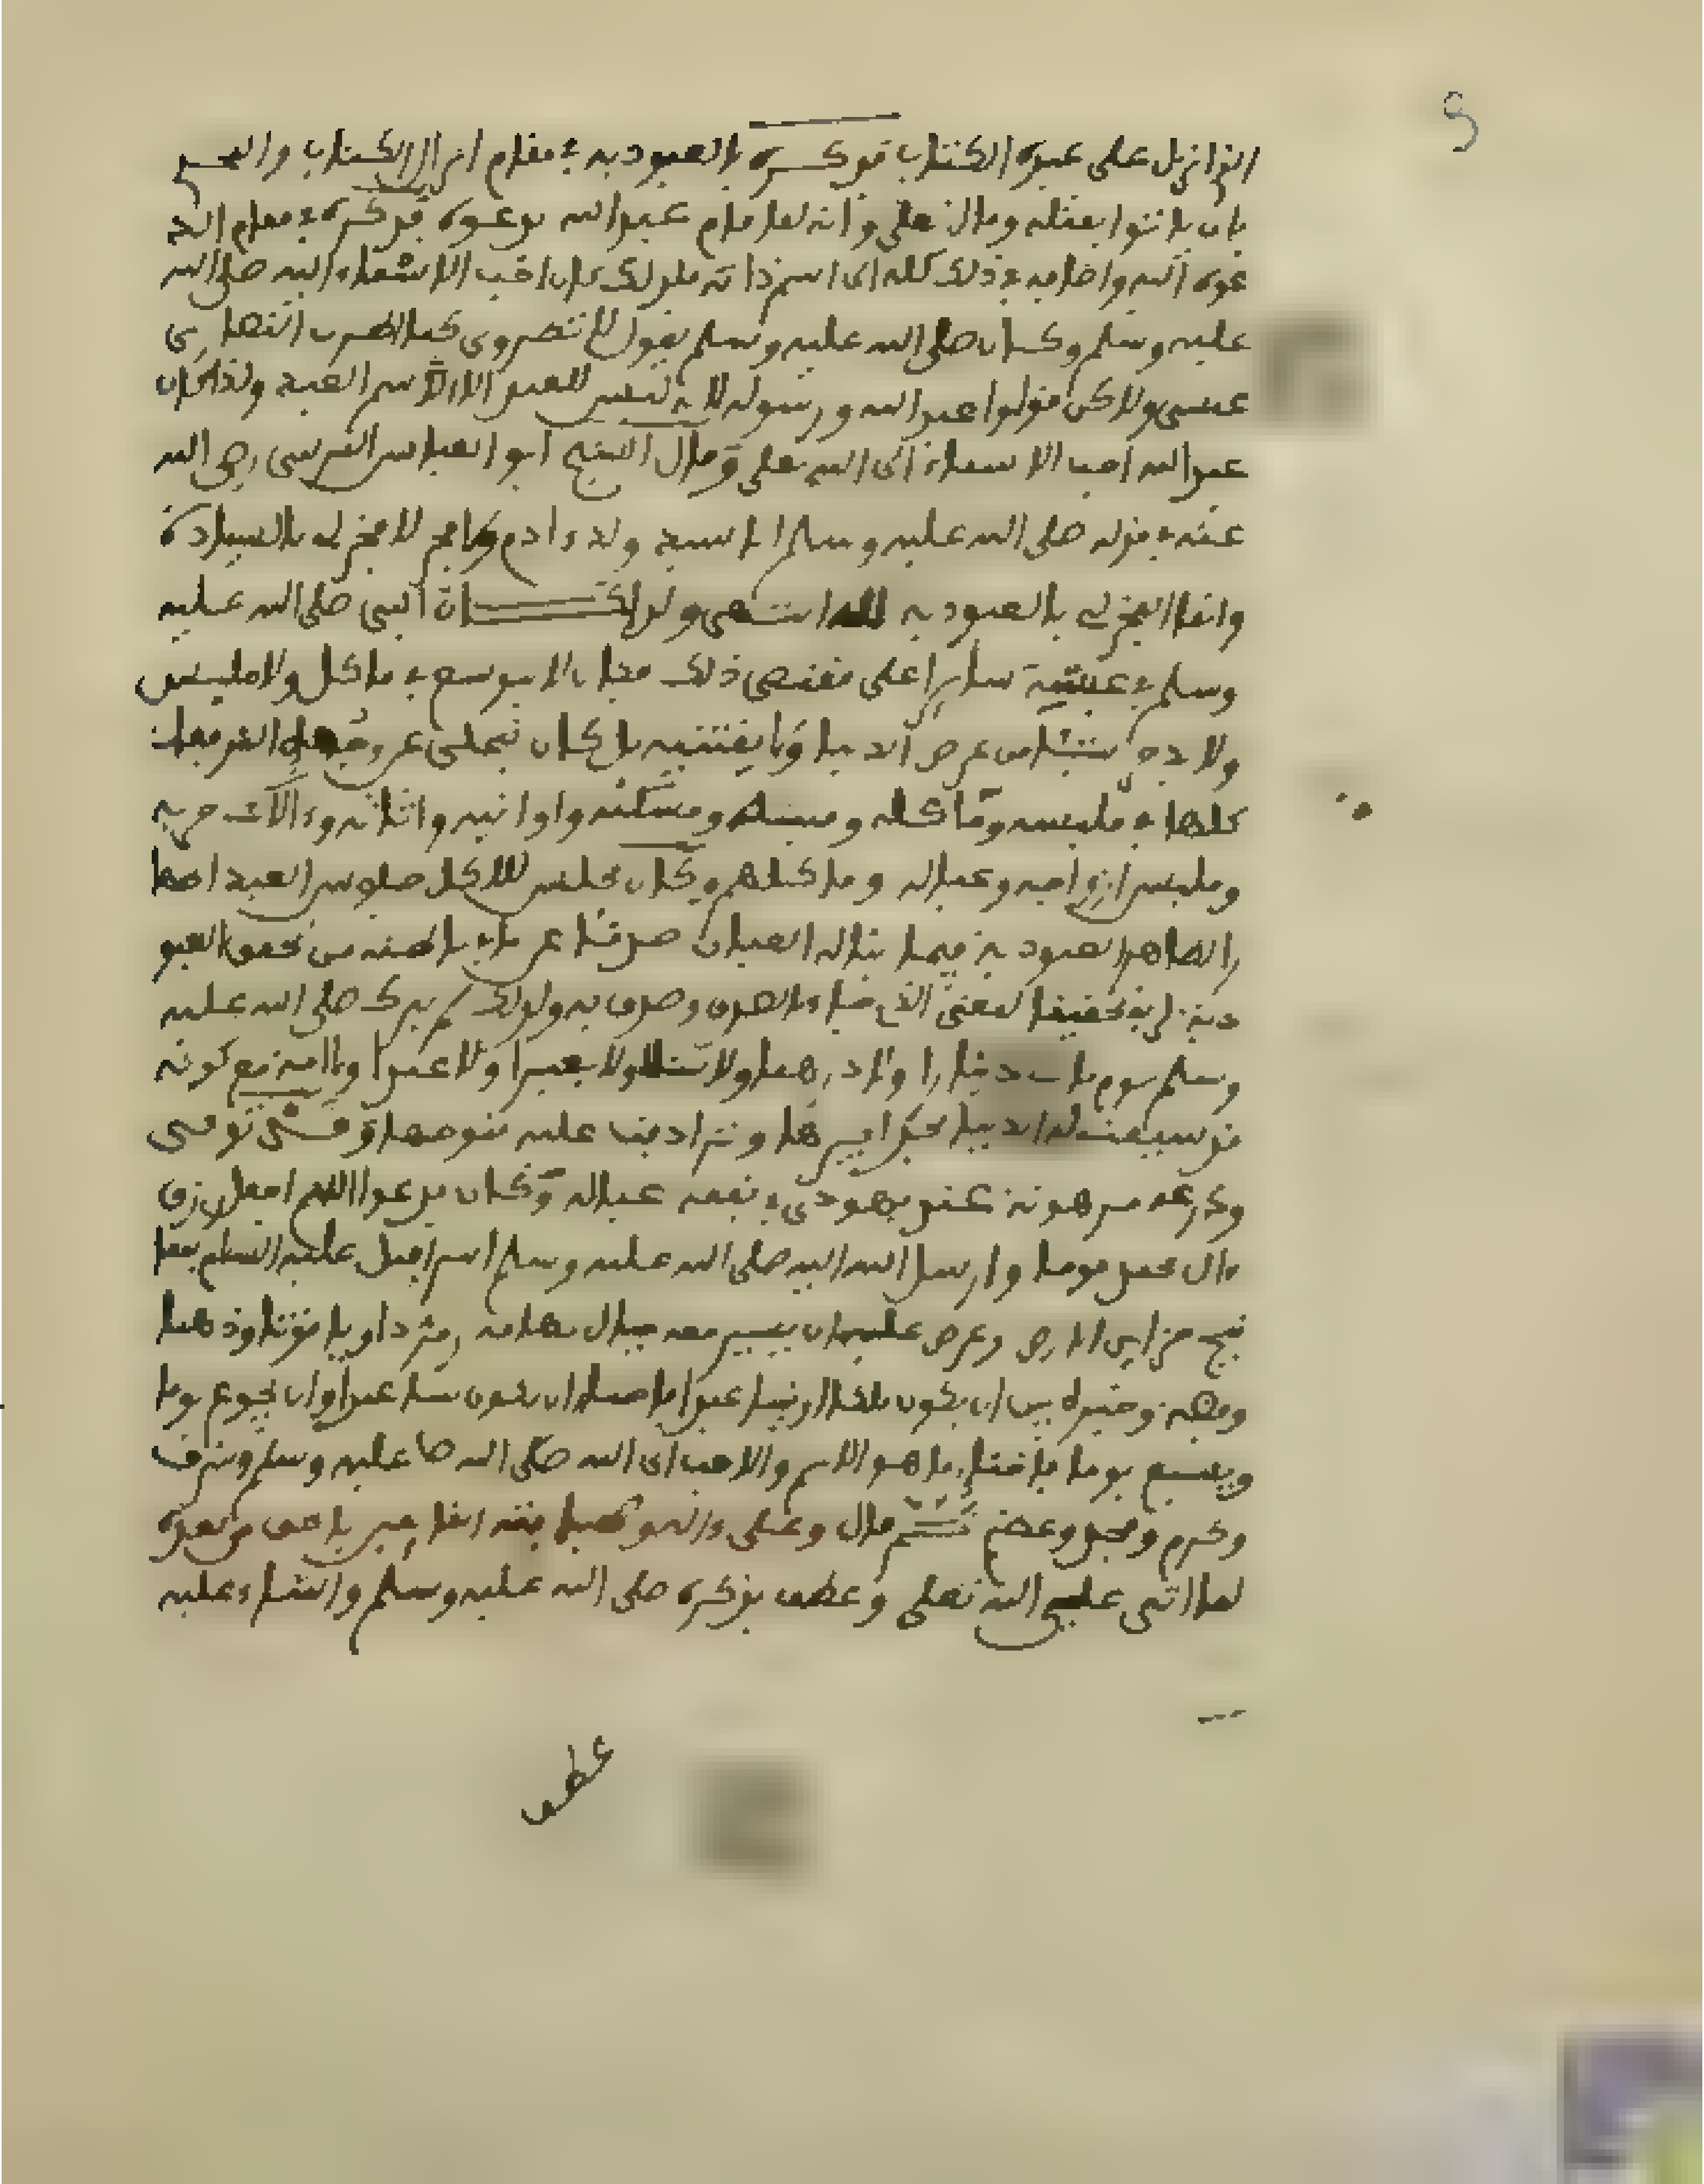 الذي انزل على عبده الكتاب فذكره بالعبودية في مقام انزال الكتاب والتحد
بان ياتوا بمثله وقال تعلى وانه لما قام عبد الله يدعوه فذكره في مقام الد
عوه اليه واضافه في ذلك كله الى اسم ذاته فلذلك كان احب الاسماء اليه صلى الله
عليه وسلم وكان صلى الله عليه وسلم يقول لا تطروني كما اطرت النصارى
عيسى ولاكن قولوا عبد الله ورسوله لانه ليس للعبد الا اسم العبد ولذا كان
عبد الله احب الاسماء الى الله تعلى وقال الشيخ ابو العباس المرسي رضي الله
عنه في قوله صلى الله عليه وسلم انا سيد ولد ءادم ولا فخر لا فخر لي بالسيادة
وانما الفخر لي بالعبودية لله انتهى ولذلك كان النبي صلى الله عليه
وسلم في عيشته سايرا على مقتضى ذلك فكان لا يتوسع في ماكل ولا ملبس
ولا في شيء من عرض الدنيا وما يقتنيه بل كان
كلها في ملبسه وماكله ومسكنه واوانيه واثاثه وءالات حربه
وملبس ازواجه وعياله وماكلهم وكان يجلس للاكل جلوس العبد اظها
را لظاهر العبودية فيما يناله العيان صدقا عما في باطنه من تحقق العبو
دية لربه تحقيقا لمعنى الذي جاء بالصدق وصدق به ولذلك لم يترك صلى الله عليه
وسلم يوم مات دينارا ولا درهما ولا شاة ولا بعيرا ولا عبدا ولا امة مع كونه
قد سيقت له الدنيا بحذافيرها وترادفت عليه فتوحها وقد توفي
ودرعه مرهونة عند يهودي في نفقة عياله وكان يدعو اللهم اجعل رزق
ءال محمد قوتا وارسل الله اليه صلى الله عليه وسلم اسرافيل عليه السلم بمفا
تيح خزاين الارض وعرض عليه ان يسير معه جبال تهامة زمردا وياقوتا وذهبا
وفضة وخيره بين ان يكون ملكا او نبيا عبدا فاختار ان يكون نبيا عبدا وان يجوع يوما
ويشبع يوما فاختار ما هو الاسم والاحب الى الله صلى الله عليه وسلم وشرف
وكرم ومجد وعظم ثم قال وعلى ءاله
لما اثنى على الله تعلى وعطف بذكره صلى الله عليه وسلم والثناء عليه
عطف